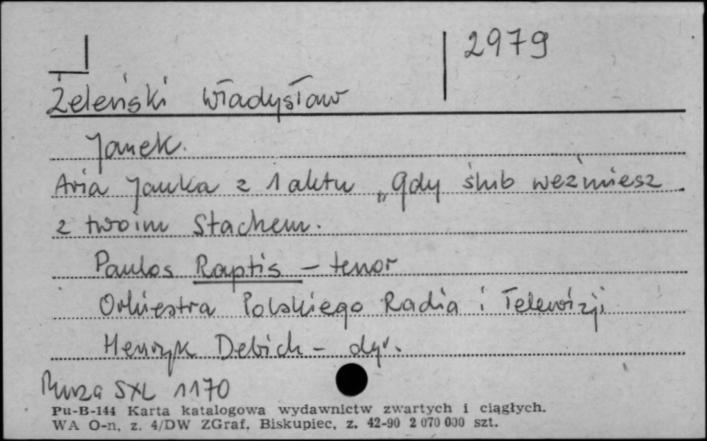 2979
Żeleński Władysław
Janek.
Aria Janka z 1 aktu „Gdy ślub weźmiesz
z twoim Stachem.
Paulos Raptis – tenor
Orkiestra Polskiego Radia i Telewizji
Henryk Debich – dyr.
Muza SXL 1170
Pu-B-144 Karta katalogowa wydawnictw zwartych i ciągłych.
WA O-n, z. 4/DW ZGraf. Biskupiec, z. 42-90 2 070 000 szt.